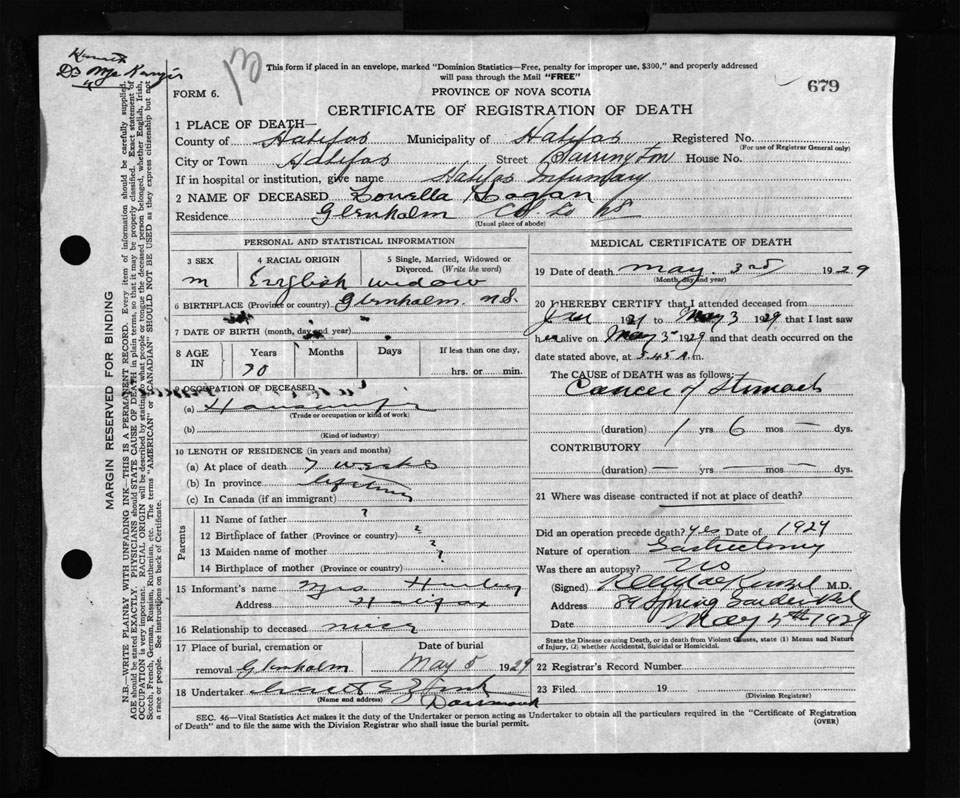 Dr MacKenzie
13
679
This form if placed in an envelope, marked "Dominion Statistics—Free, penalty for improper use, $300," and properly addressed
will pass through the Mail "FREE"
FORM 6.
PROVINCE OF NOVA SCOTIA
CERTIFICATE OF REGISTRATION OF DEATH
1 PLACE OF DEATH—
County of Halifax Municipality of Halifax Registered No.
(For use of Registrar General only)
City or Town Halifax Street Barrington House No.
If in hospital or institution, give name Halifax Infirmary
2 NAME OF DECEASED Louella Hogan
Residence Glenholm Col. Co NS
(Usual place of abode)
PERSONAL AND STATISTICAL INFORMATION
3 SEX 4 RACIAL ORIGIN 5 Single, Married, Widowed or
Divorced. (Write the word)
m English widow
6 BIRTHPLACE (Province or country) Glenholm. N.S.
7 DATE OF BIRTH (month, day and year)
8 AGE IN Years Months Days If less than one day,
70 hrs. or min.
9 OCCUPATION OF DECEASED
(a) Housewife
(Trade or occupation or kind of work)
(b)
(Kind of industry)
10 LENGTH OF RESIDENCE (in years and months)
(a) At place of death 7 weeks
(b) In province lifetime
(c) In Canada (if an immigrant)
Parents
11 Name of father ?
12 Birthplace of father (Province or country) ?
13 Maiden name of mother ?
14 Birthplace of mother (Province or country) ?
15 Informant's name Mrs Hurley
Address Halifax
16 Relationship to deceased niece
17 Place of burial, cremation or Date of burial
removal Glenholm May 5 1929
18 Undertaker
(Name and address) Dartmouth
MEDICAL CERTIFICATE OF DEATH
19 Date of death May. 3rd 1929
(Month, day and year)
20 I HEREBY CERTIFY that I attended deceased from
Jan 1921 to May 3 1929 that I last saw
her alive on May 3rd 1929 and that death occurred on the
date stated above, at 5.45 A.m.
The CAUSE of DEATH was as follows:
Cancer of Stomach
(duration) 1 yrs 6 mos — dys.
CONTRIBUTORY
(duration) — yrs. — mos. — dys.
21 Where was disease contracted if not at place of death?
Did an operation precede death? yes Date of 1927
Nature of operation Gastrectomy
Was there an autopsy? No
(Signed) MacKenzie M.D.
Address 89 Spring Garden Rd
Date May 5th 1929
State the Disease causing Death, or in death from Violent Causes, state (1) Means and Nature
of Injury, (2) whether Accidental, Suicidal or Homicidal.
22 Registrar's Record Number
23 Filed 19
(Division Registrar)
SEC. 46—Vital Statistics Act makes it the duty of the Undertaker or person acting as Undertaker to obtain all the particulars required in the "Certificate of Registration
of Death" and to file the same with the Division Registrar who shall issue the burial permit.
(OVER)
MARGIN RESERVED FOR BINDING
N.B.—WRITE PLAINLY WITH UNFADING INK—THIS IS A PERMANENT RECORD. Every item of information should be carefully supplied.
AGE should be stated EXACTLY. PHYSICIANS should STATE CAUSE OF DEATH in plain terms, so that it may be properly classified. Exact statement of
OCCUPATION is very important. RACIAL ORIGIN will be described by stating to what people or tongue the deceased person belonged, whether English, Irish,
Scotch, French, German, Russian, Ruthenian, etc. The terms "AMERICAN" or "CANADIAN" SHOULD NOT BE USED as they express citizenship but not
a race or people. See instructions on back of Certificate.